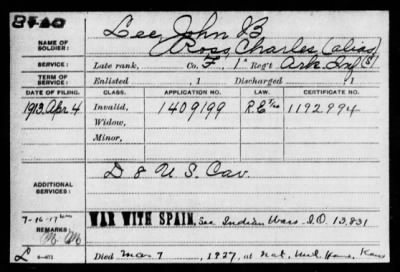 Lee, John B
NAME OF SOLDIER:
Ross, Charles (alias)
SERVICE: Late rank, Co. F, 1" Reg't Ark. Inf (S)
TERM OF SERVICE: Enlisted , 1 Discharged , 1
DATE OF FILING. CLASS. APPLICATION NO. LAW. CERTIFICATE NO.
1913 Apr 4 Invalid, 1409199 1192994
Widow,
Minor,
ADDITIONAL SERVICES: D 8 U.S. Cav.
7-16-17
REMARKS: WAR WITH SPAIN, See Indian Wars I.O. 13,831
Died Mar 7, 1927, at Nat. Mil. Home, Kans